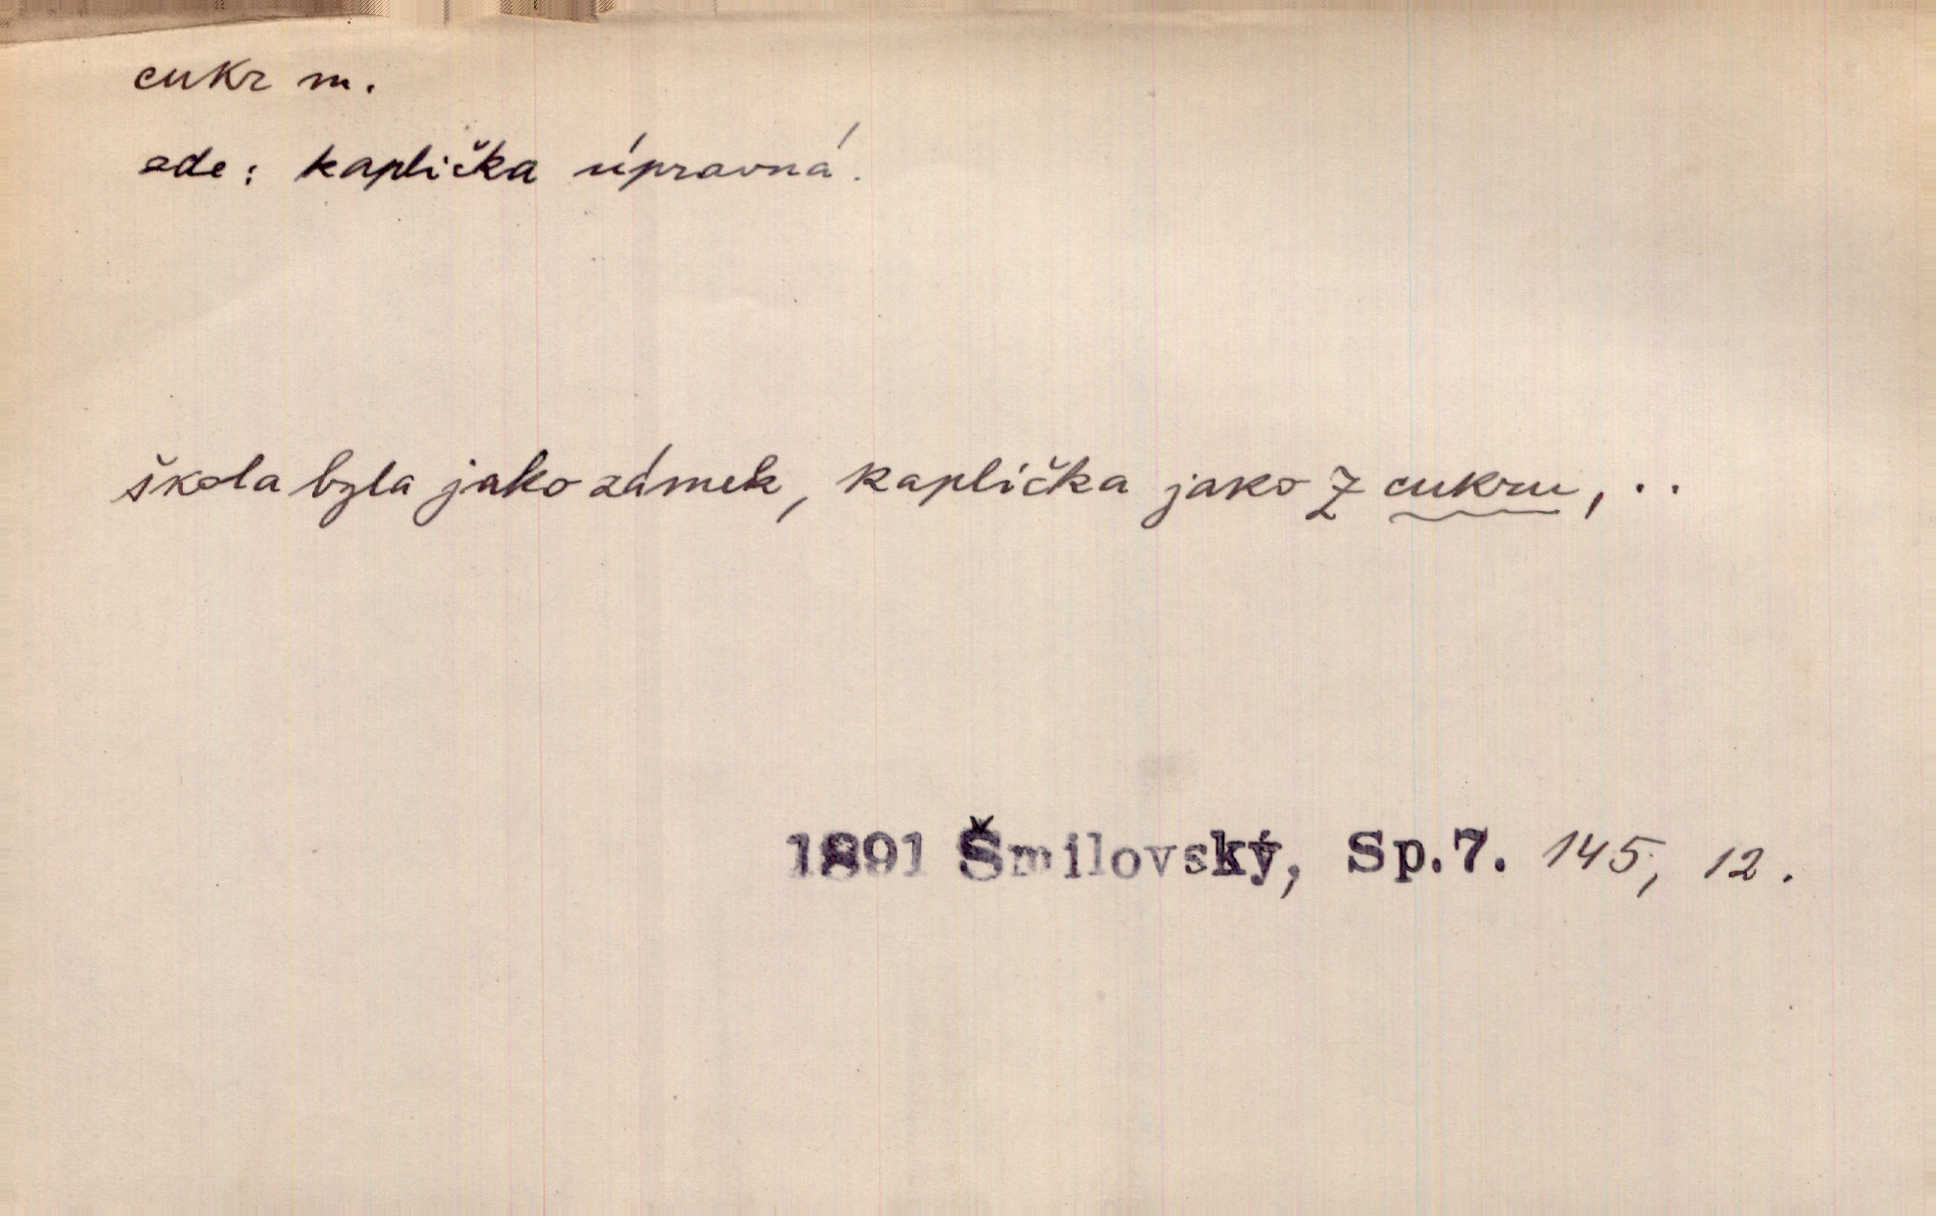 cukr m.
zde: kaplička úpravná.
škola byla jako zámek, kaplička jako z cukru, ..
1891 Šmilovský, Sp.7. 145, 12.